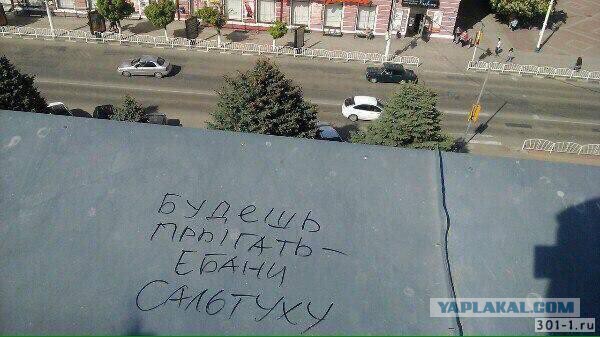 БУДЕШЬ
ПРЫГАТЬ –
ЕБАНИ
САЛЬТУХУ
YAPLAKAL.COM
301-1.ru